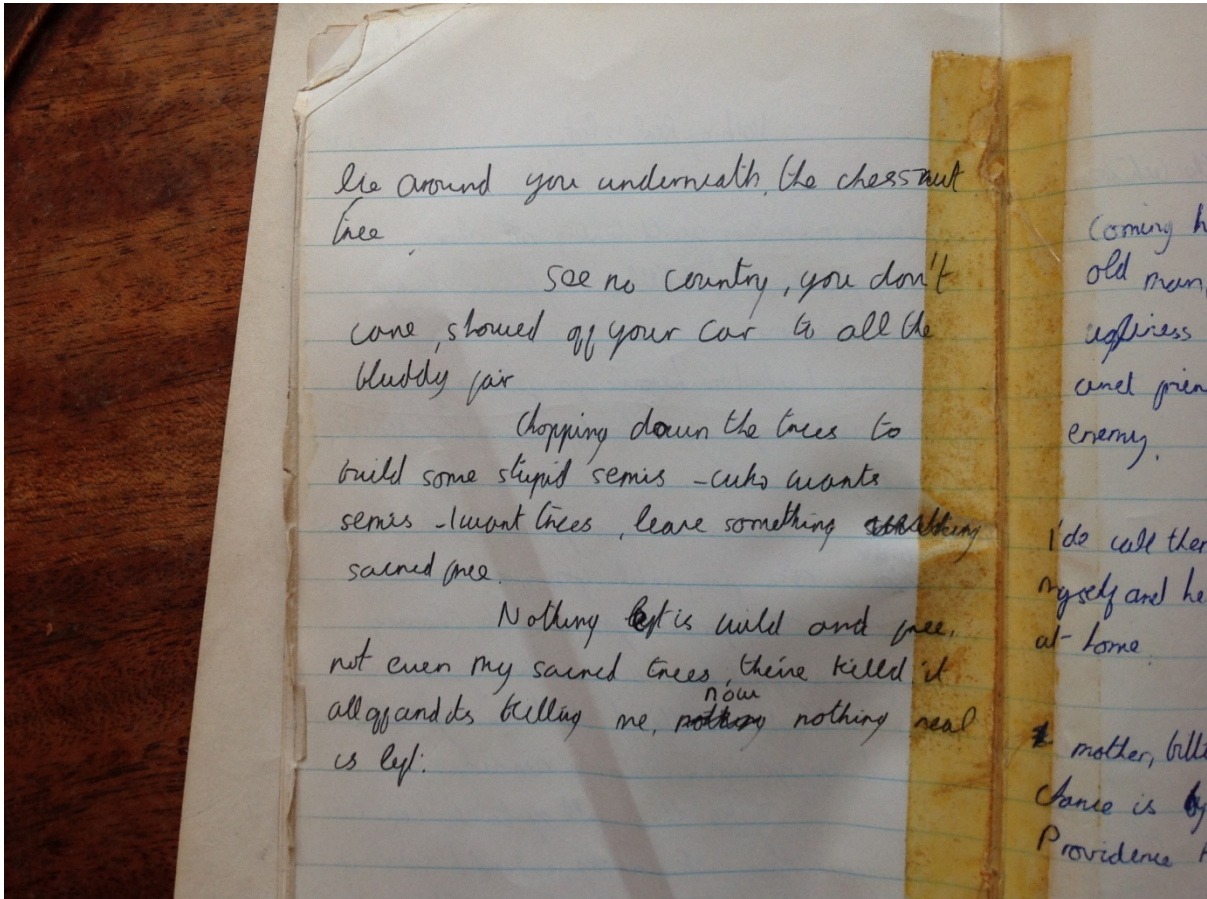 lie around you underneath, the chessnut
tree.
see no country, you don't
care, showed off your car to all the
bluddy fair
Chopping down the trees to
build some stupid semis - who wants
semis - I want trees, leave something
sacred free.
Nothing left is wild and free,
not even my sacred trees, theive killed it
all off and its killing me, now nothing real
is left.
Coming h
old man,
ugliness
and frien
enemy.
I'de call ther
myself and he
at home
mother, bill
chance is by
Providence